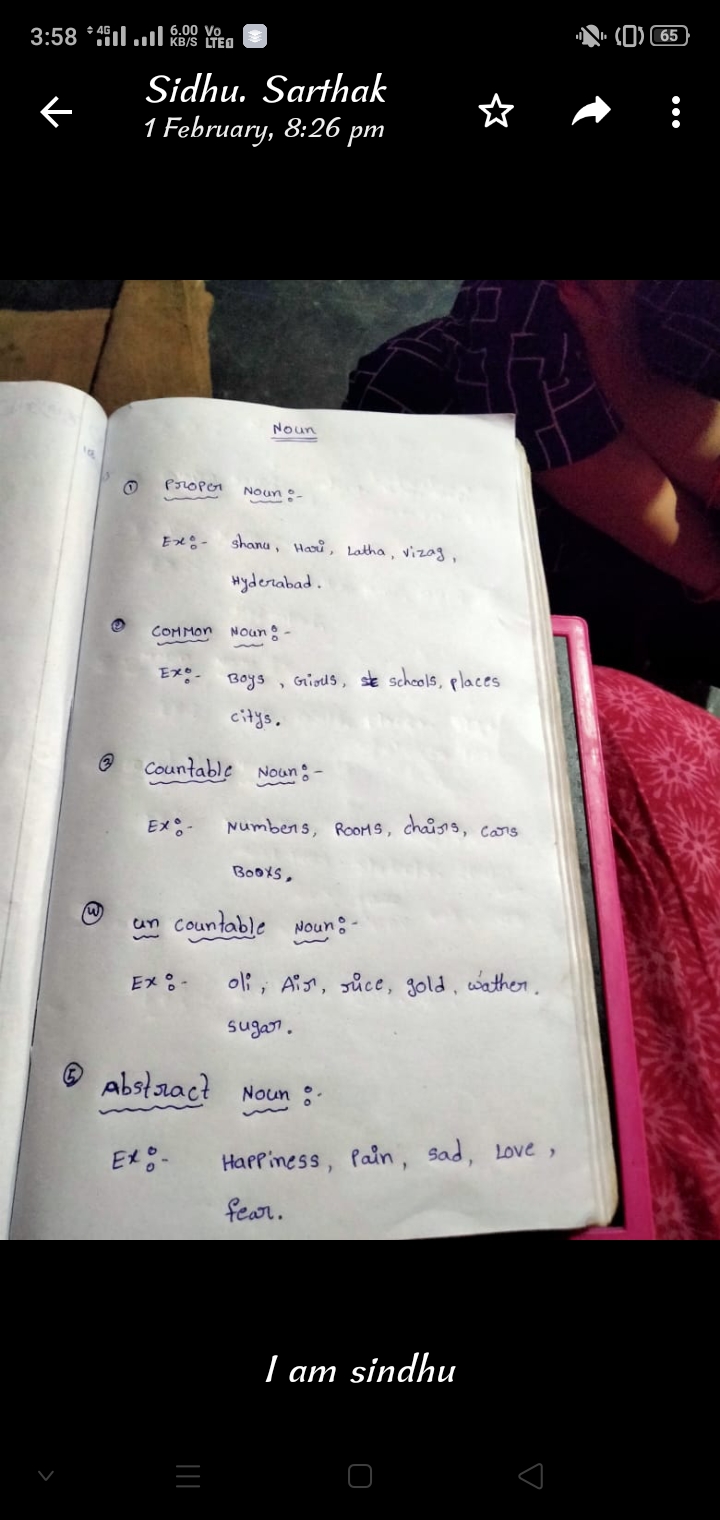 3:58 4G 6.00 KB/S Vo LTE 65
Sidhu. Sarthak
1 February, 8:26 pm
Noun
① Proper Noun :-
Ex :- shanu, Hari, Latha, vizag,
Hyderabad.
② Common Noun :-
Ex :- Boys, Girls, schools, places
citys.
③ Countable Noun :-
Ex :- Numbers, Rooms, chairs, cars
Books.
④ un countable Noun :-
Ex :- oli, Air, rice, gold, wather.
sugar.
⑤ Abstract Noun :-
Ex :- Happiness, Pain, sad, Love,
fear.
I am sindhu